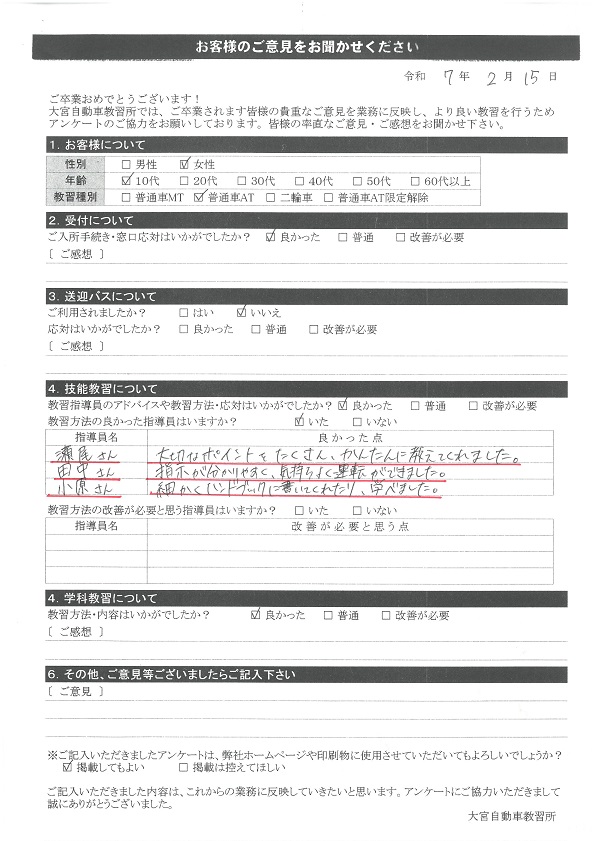 お客様のご意見をお聞かせください
令和 7年 2月 15日
ご卒業おめでとうございます！
大宮自動車教習所では、ご卒業されます皆様の貴重なご意見を業務に反映し、より良い教習を行うため
アンケートのご協力をお願いしております。皆様の率直なご意見・ご感想をお聞かせ下さい。
1. お客様について
性別 □ 男性 ☑ 女性
年齢 ☑ 10代 □ 20代 □ 30代 □ 40代 □ 50代 □ 60代以上
教習種別 □ 普通車MT ☑ 普通車AT □ 二輪車 □ 普通車AT限定解除
2. 受付について
ご入所手続き・窓口応対はいかがでしたか？ ☑ 良かった □ 普通 □ 改善が必要
〔 ご感想 〕
3. 送迎バスについて
ご利用されましたか？ □ はい ☑ いいえ
応対はいかがでしたか？ □ 良かった □ 普通 □ 改善が必要
〔 ご感想 〕
4. 技能教習について
教習指導員のアドバイスや教習方法・応対はいかがでしたか？ ☑ 良かった □ 普通 □ 改善が必要
教習方法の良かった指導員はいますか？ ☑ いた □ いない
指導員名 良かった点
瀬尾さん 大切なポイントをたくさん、かんたんに教えてくれました。
田中さん 指示が分かりやすく、気持ちよく運転ができました。
小原さん 細かくハンドブックに書いてくれたり、学べました。
教習方法の改善が必要と思う指導員はいますか？ □ いた □ いない
指導員名 改善が必要と思う点
4. 学科教習について
教習方法・内容はいかがでしたか？ ☑ 良かった □ 普通 □ 改善が必要
〔 ご感想 〕
6. その他、ご意見等ございましたらご記入下さい
〔 ご意見 〕
※ご記入いただきましたアンケートは、弊社ホームページや印刷物に使用させていただいてもよろしいでしょうか？
☑ 掲載してもよい □ 掲載は控えてほしい
ご記入いただきました内容は、これからの業務に反映していきたいと思います。アンケートにご協力いただきまして
誠にありがとうございました。
大宮自動車教習所